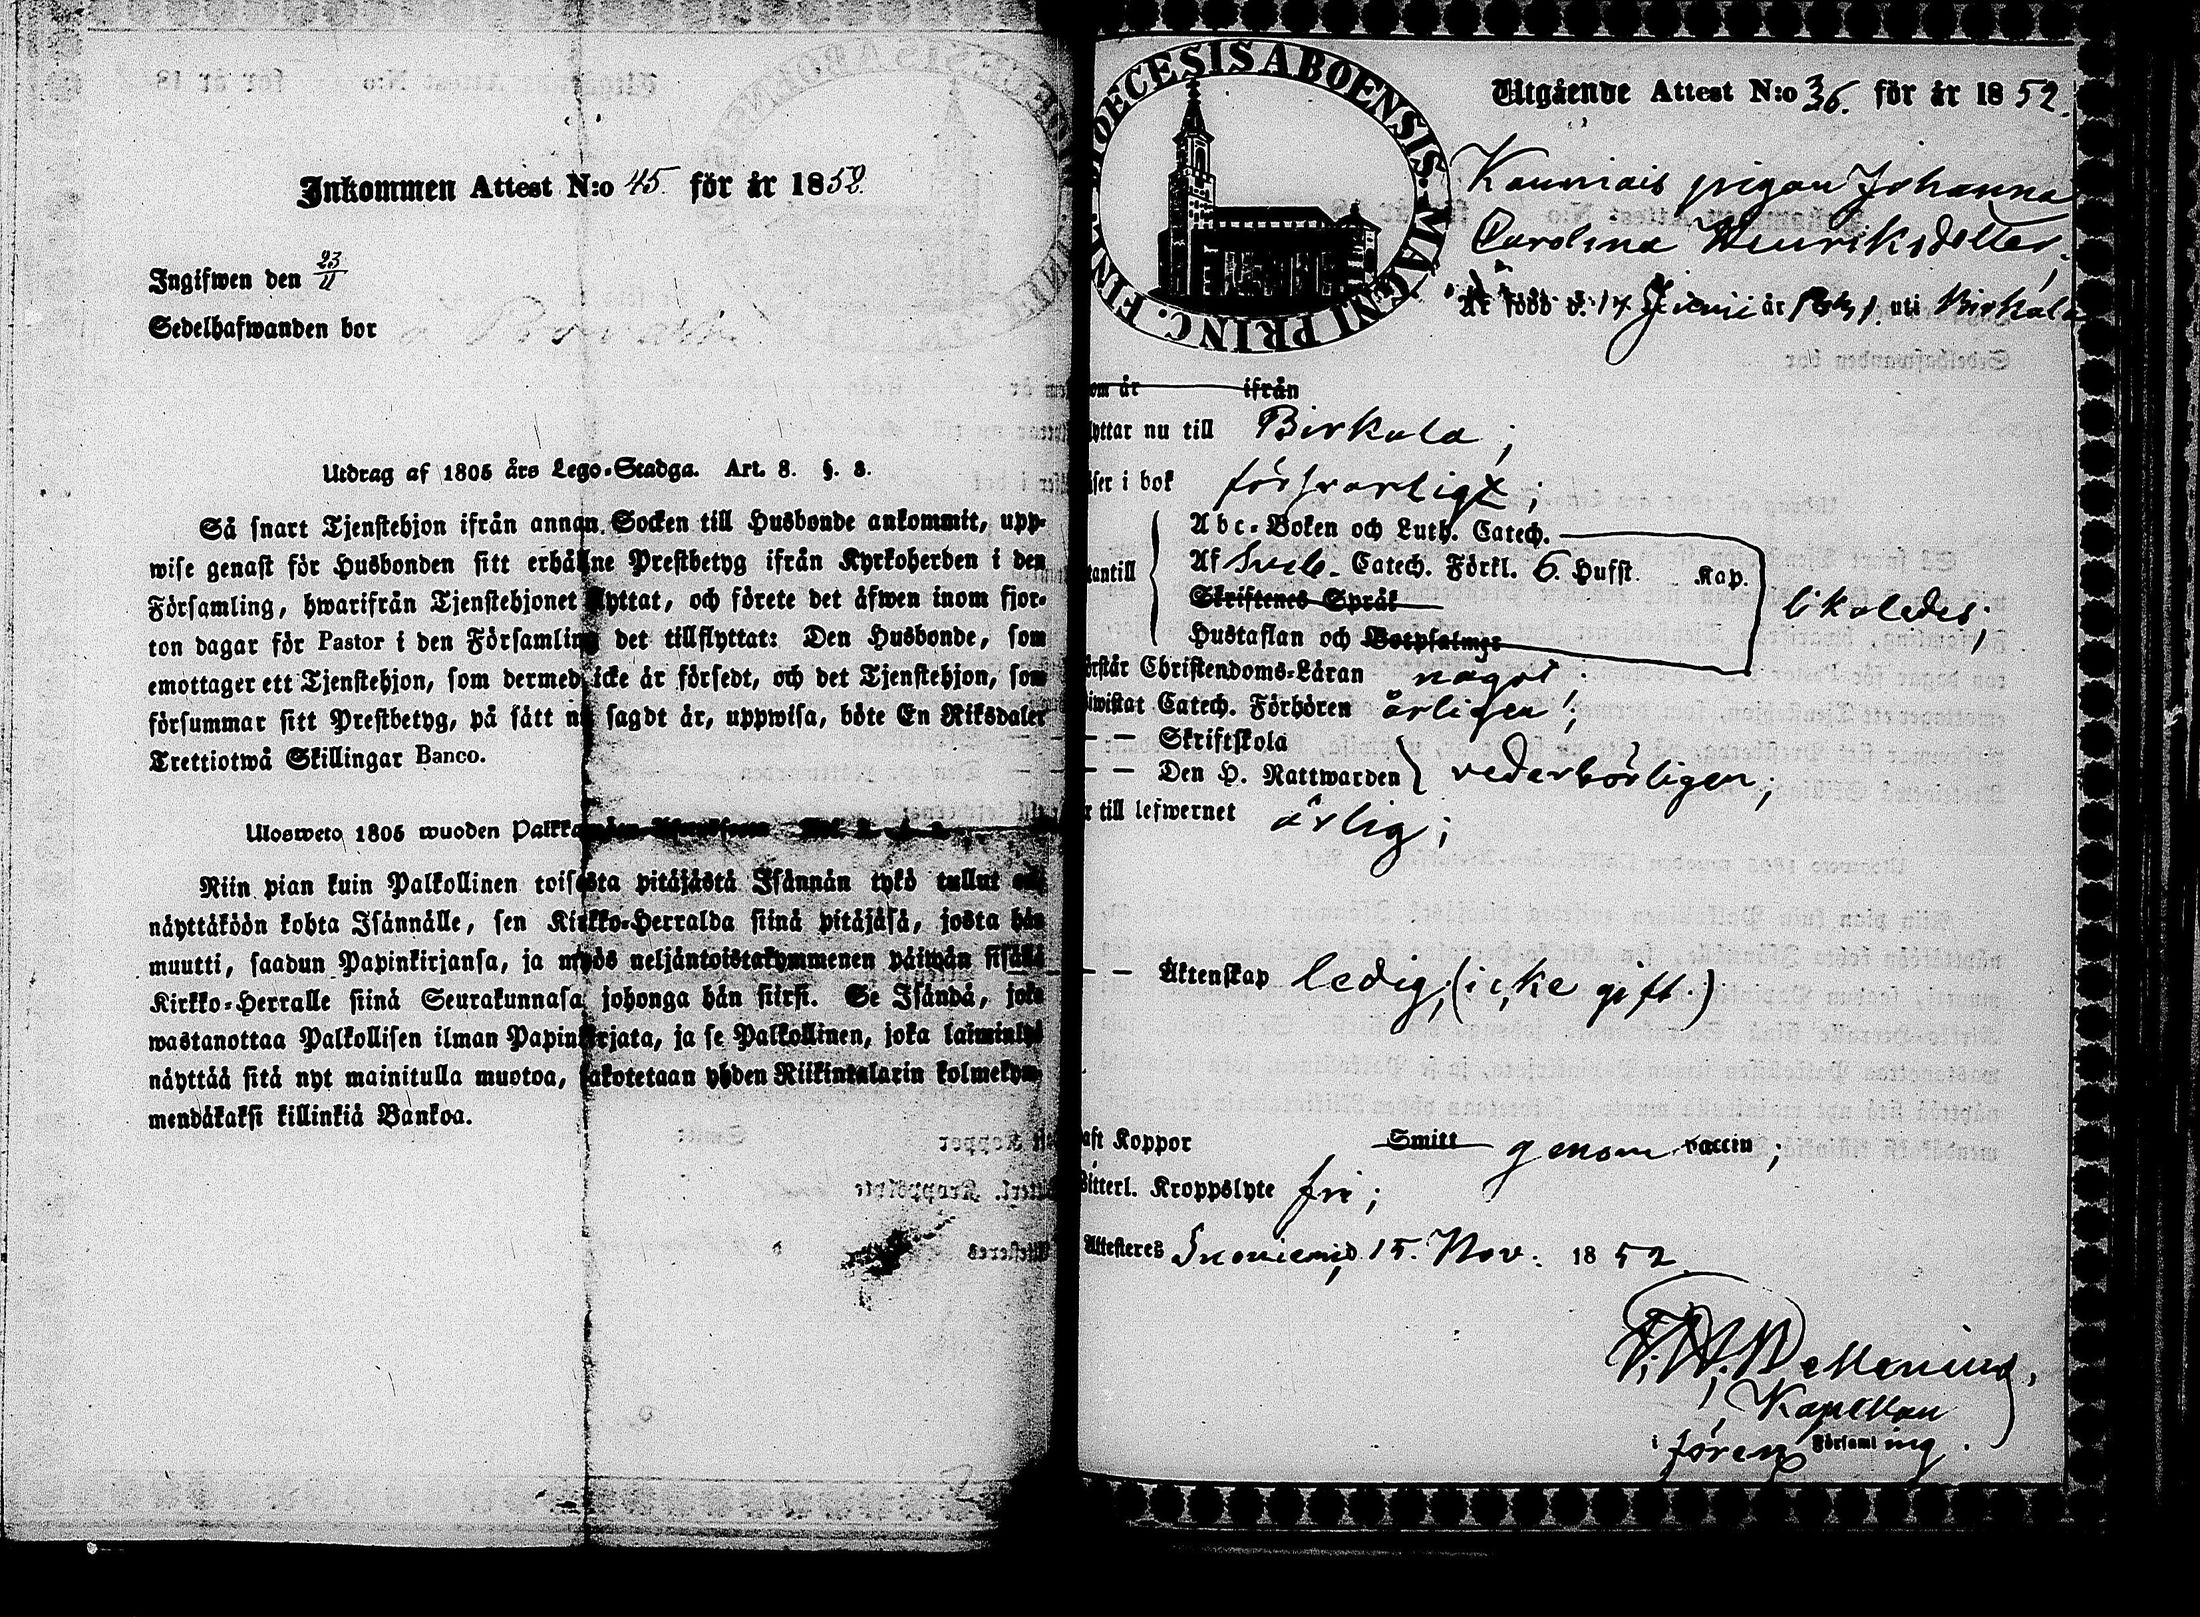 Inkommen Attest N:o 45. för år 1852.
Ingifwen den 23/11
Sedelhafwanden bor
Utdrag af 1805 års Lego-Stadga. Art. 8. §. 3.
Så snart Tjenstehjon ifrån annan Socken till Husbonde ankommit, upp-
wise genast för Husbonden sitt erhållne Prestbetyg ifrån Kyrkoherden i den
Församling, hwarifrån Tjenstehjonet flyttat, och förete det äfwen inom fjor-
ton dagar för Pastor i den Församling det tillflyttat: Den Husbonde, som
emottager ett Tjenstehjon, som dermed icke är försedt, och det Tjenstehjon, som
försummar sitt Prestbetyg, på sätt nu sagdt är, uppwisa, böte En Riksdaler
Trettiotwå Skillingar Banco.
Ulosweto 1805 wuoden
Niin pian kuin Palkollinen toisesta pitäjästä Isännän tykö tullut on,
näyttäköön kohta Isännälle, sen Kirkko-Herralda siinä pitäjäsä, josta hän
muutti, saadun Papinkirjansa, ja myös neljäntoistakymmenen päiwän sisällä
Kirkko-Herralle siinä Seurakunnasa johonga hän siirsi. Se Isändä, joka
wastanottaa Palkollisen ilman Papinkirjata, ja se Palkollinen, joka laiminlyö
näyttää sitä nyt mainitulla muotoa, sakotetaan yhden Riikintalarin kolmekym-
mendäkaksi killinkiä Bankoa.
DIOECESIS ABOENSIS. MAGNI PRINC. FINL.
Utgående Attest N:o 36. för år 1852.
pigan Johanna
Carolina Henriksdotter,
Är född d. 17 Junii år uti Birkala
om år ifrån
lyttar nu till Birkala;
äser i bok försvarligt;
Abc-Boken och Luth. Catech.
Af Sveb. Catech. Förkl. 6. Hufst. Kap.
utantill likaledes;
Skriftenes Språk
Hustaflan och Botpsalmer
örstår Christendoms-Läran något.
iwistat Catech. Förhören årligen;
— — Skriftskola
— — Den H. Nattwarden vederbörligen;
r till lefwernet ärlig;
— — Äktenskap ledig, (icke gift.)
aft Koppor Smitt genom vaccin;
Bitterl. Kroppslyte fri;
Attesteres Suoniemi, 15. Nov. 1852.
Kapellan
i Församling.